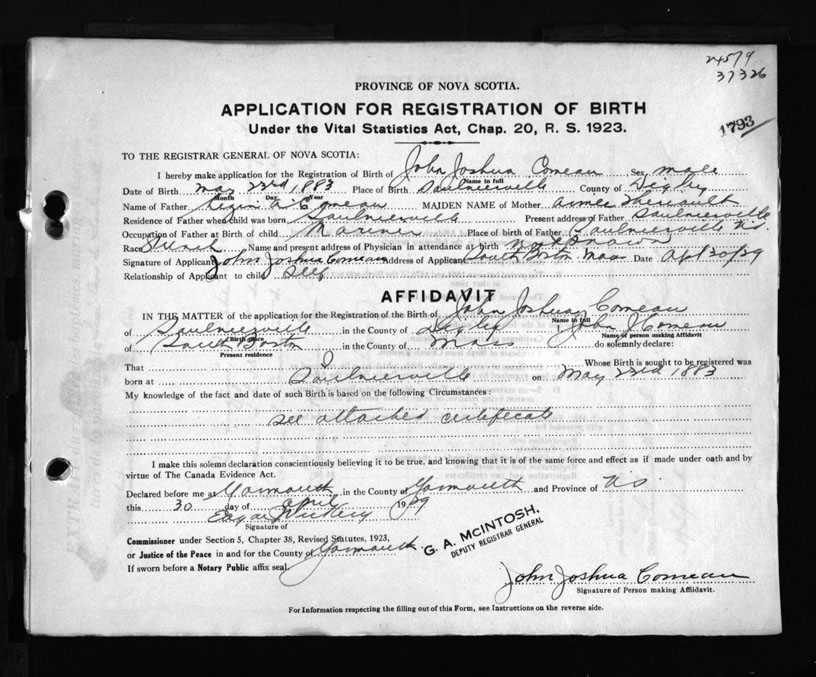 24579
37326
PROVINCE OF NOVA SCOTIA.
APPLICATION FOR REGISTRATION OF BIRTH
1793
Under the Vital Statistics Act, Chap. 20, R. S. 1923.
TO THE REGISTRAR GENERAL OF NOVA SCOTIA:
I hereby make application for the Registration of Birth of John Joshua Comeau Sex male
Name in full
Date of Birth May 23rd 1883 Place of Birth Saulnierville County of Digby
Month Day Year
Name of Father A Comeau MAIDEN NAME of Mother Theriault
Residence of Father when child was born Saulnierville Present address of Father Saulnierville
Occupation of Father at Birth of child Mariner Place of birth of Father Saulnierville N.S.
Race French Name and present address of Physician in attendance at birth not known
Signature of Applicant John Joshua Comeau Address of Applicant South Boston Mass Date Apl 30/29
Relationship of Applicant to child Self
AFFIDAVIT
IN THE MATTER of the application for the Registration of the Birth of John Joshua Comeau
Name in full
of Saulnierville in the County of Digby I, John J Comeau
Birth Place Name of person making Affidavit
of South Boston in the County of Mass do solemnly declare:
Present residence
That Whose Birth is sought to be registered was
born at Saulnierville on May 23rd 1883
My knowledge of the fact and date of such Birth is based on the following Circumstances:
see attached certificate
I make this solemn declaration conscientiously believing it to be true, and knowing that it is of the same force and effect as if made under oath and by
virtue of The Canada Evidence Act.
Declared before me at Yarmouth in the County of Yarmouth and Province of N.S.
this 30 day of April 1929
Signature of
Commissioner under Section 5, Chapter 38, Revised Statutes, 1923,
or Justice of the Peace in and for the County of Yarmouth
If sworn before a Notary Public affix seal
G. A. MCINTOSH,
DEPUTY REGISTRAR GENERAL
John Joshua Comeau
Signature of Person making Affidavit.
For Information respecting the filling out of this Form, see Instructions on the reverse side.